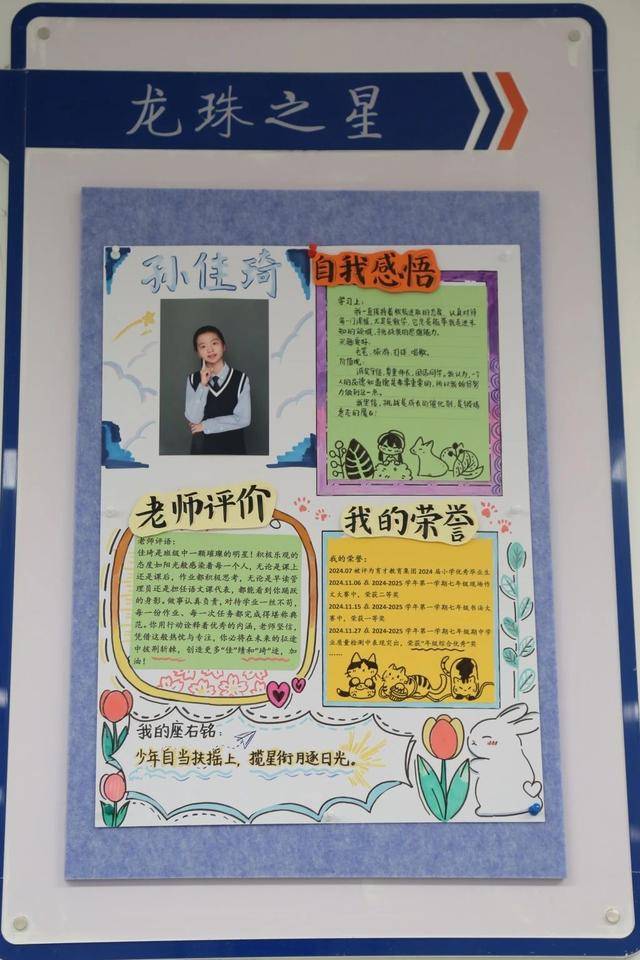 龙珠之星
孙佳琦
自我感悟
学习上：
我一直保持着积极进取的态度，认真对待
每一门课程，尤其是数学，它总是能带我走进未
知的领域，挑战我的思维能力。
兴趣爱好：
毛笔、旅游、引体、唱歌。
价值观：
诚实守信，尊重师长，团结同学。我认为，一个
人的品德和道德是非常重要的，所以我的努
力做到这一点。
我坚信，挑战是成长的催化剂，是锻炼
意志的魔石！
老师评价
老师评语：
佳琦是班级中一颗璀璨的明星！积极乐观的
态度如阳光般感染着每一个人，无论是课上
还是课后，作业都积极思考，无论是早读管
理员还是担任语文课代表，都能看到你踊跃
的身影。做事认真负责，对待学业一丝不苟，
每一份作业、每一次任务都完成得堪称典
范。你用行动诠释着优秀的内涵，老师坚信，
凭借这般热忱与专注，你必将在未来的征途
中披荆斩棘，创造更多“佳”绩和“琦”迹，加
油！
我的荣誉
我的荣誉：
2024.07 被评为育才教育集团 2024 届小学优秀毕业生
2024.11.06 在 2024-2025 学年第一学期七年级现场作
文大赛中，荣获二等奖
2024.11.15 在 2024-2025 学年第一学期七年级书法大
赛中，荣获一等奖
2024.11.27 在 2024-2025 学年第一学期七年级期中学
业质量检测中表现突出，荣获“年级综合优秀”奖
......
我的座右铭：
少年自当扶摇上，揽星衔月逐日光。